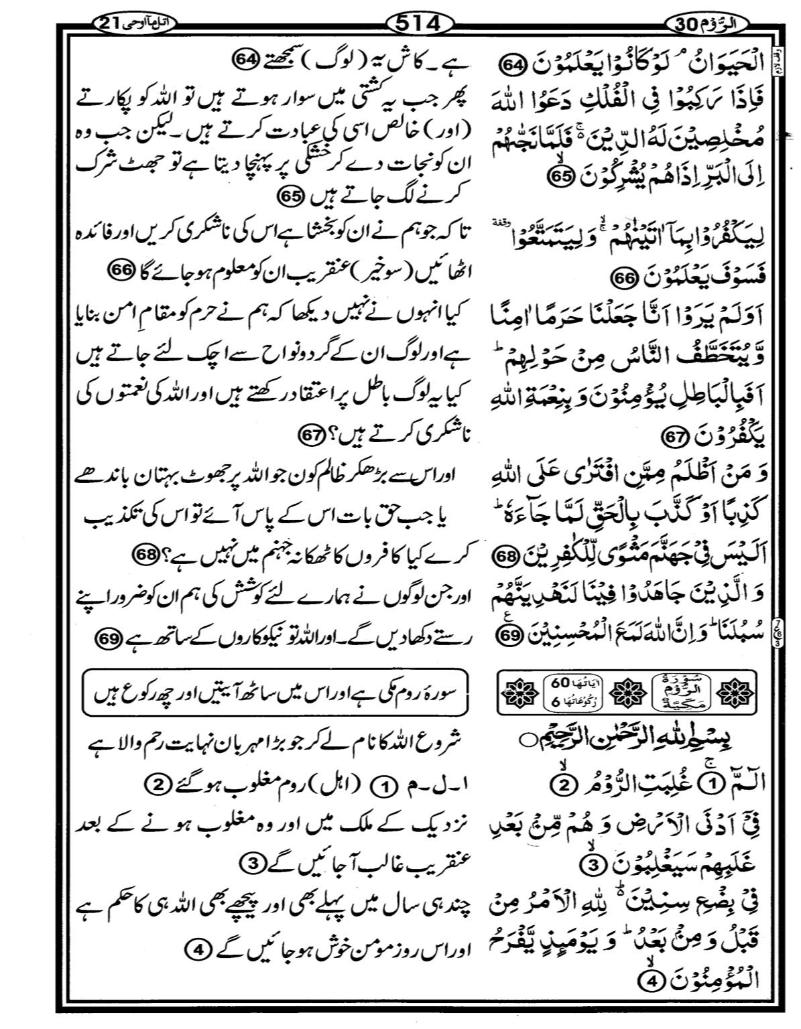 الرُّوۡم 30
514
اتل مآ اوحی 21
الۡحَيَوَانُ ۘ لَوۡ كَانُوۡا يَعۡلَمُوۡنَ 64
فَاِذَا رَكِبُوۡا فِى الۡفُلۡكِ دَعَوُا اللّٰهَ
مُخۡلِصِيۡنَ لَهُ الدِّيۡنَ ۚ فَلَمَّا نَجّٰٮهُمۡ
اِلَى الۡبَرِّ اِذَا هُمۡ يُشۡرِكُوۡنَ ۙ 65
لِيَكۡفُرُوۡا بِمَاۤ اٰتَيۡنٰهُمۡ ۙۚ وَلِيَتَمَتَّعُوۡا وقفة
فَسَوۡفَ يَعۡلَمُوۡنَ 66
اَوَلَمۡ يَرَوۡا اَنَّا جَعَلۡنَا حَرَمًا اٰمِنًا
وَّيُتَخَطَّفُ النَّاسُ مِنۡ حَوۡلِهِمۡ ؕ
اَفَبِالۡبَاطِلِ يُؤۡمِنُوۡنَ وَ بِنِعۡمَةِ اللّٰهِ
يَكۡفُرُوۡنَ 67
وَ مَنۡ اَظۡلَمُ مِمَّنِ افۡتَرٰى عَلَى اللّٰهِ
كَذِبًا اَوۡ كَذَّبَ بِالۡحَقِّ لَمَّا جَآءَهٗ ؕ
اَلَيۡسَ فِىۡ جَهَنَّمَ مَثۡوًى لِّلۡكٰفِرِيۡنَ 68
وَ الَّذِيۡنَ جَاهَدُوۡا فِيۡنَا لَنَهۡدِيَنَّهُمۡ
سُبُلَنَا ؕ وَ اِنَّ اللّٰهَ لَمَعَ الۡمُحۡسِنِيۡنَ 69
سُوۡرَةُ الرُّوۡمِ مَكِّيَّةٌ
اٰيَاتُهَا 60
رُكُوۡعَاتُهَا 6
بِسۡمِ اللّٰهِ الرَّحۡمٰنِ الرَّحِيۡمِ
الٓمّٓ ۚ 1 غُلِبَتِ الرُّوۡمُ ۙ 2
فِىۡۤ اَدۡنَى الۡاَرۡضِ وَ هُمۡ مِّنۡۢ بَعۡدِ
غَلَبِهِمۡ سَيَغۡلِبُوۡنَ ۙ 3
فِىۡ بِضۡعِ سِنِيۡنَ ؕ لِلّٰهِ الۡاَمۡرُ مِنۡ
قَبۡلُ وَ مِنۡۢ بَعۡدُ ؕ وَ يَوۡمَٮِٕذٍ يَّفۡرَحُ
الۡمُؤۡمِنُوۡنَ ۙ 4
ہے۔ کاش یہ (لوگ) سمجھتے 64
پھر جب یہ کشتی میں سوار ہوتے ہیں تو اللہ کو پکارتے
(اور) خالص اسی کی عبادت کرتے ہیں۔ لیکن جب وہ
ان کو نجات دے کر خشکی پر پہنچا دیتا ہے تو جھٹ شرک
کرنے لگ جاتے ہیں 65
تاکہ جو ہم نے ان کو بخشا ہے اس کی ناشکری کریں اور فائدہ
اٹھائیں (سو خیر) عنقریب ان کو معلوم ہو جائے گا 66
کیا انہوں نے نہیں دیکھا کہ ہم نے حرم کو مقامِ امن بنایا
ہے اور لوگ ان کے گرد و نواح سے اچک لئے جاتے ہیں
کیا یہ لوگ باطل پر اعتقاد رکھتے ہیں اور اللہ کی نعمتوں کی
ناشکری کرتے ہیں؟ 67
اور اس سے بڑھکر ظالم کون جو اللہ پر جھوٹ بہتان باندھے
یا جب حق بات اس کے پاس آئے تو اس کی تکذیب
کرے کیا کافروں کا ٹھکانہ جہنم میں نہیں ہے؟ 68
اور جن لوگوں نے ہمارے لئے کوشش کی ہم ان کو ضرور اپنے
رستے دکھا دیں گے۔ اور اللہ تو نیکو کاروں کے ساتھ ہے 69
سورۂ روم مکی ہے اور اس میں ساٹھ آیتیں اور چھ رکوع ہیں
شروع اللہ کا نام لے کر جو بڑا مہربان نہایت رحم والا ہے
ا۔ل۔م 1 (اہل) روم مغلوب ہو گئے 2
نزدیک کے ملک میں اور وہ مغلوب ہونے کے بعد
عنقریب غالب آ جائیں گے 3
چند ہی سال میں پہلے بھی اور پیچھے بھی اللہ ہی کا حکم ہے
اور اس روز مومن خوش ہو جائیں گے 4